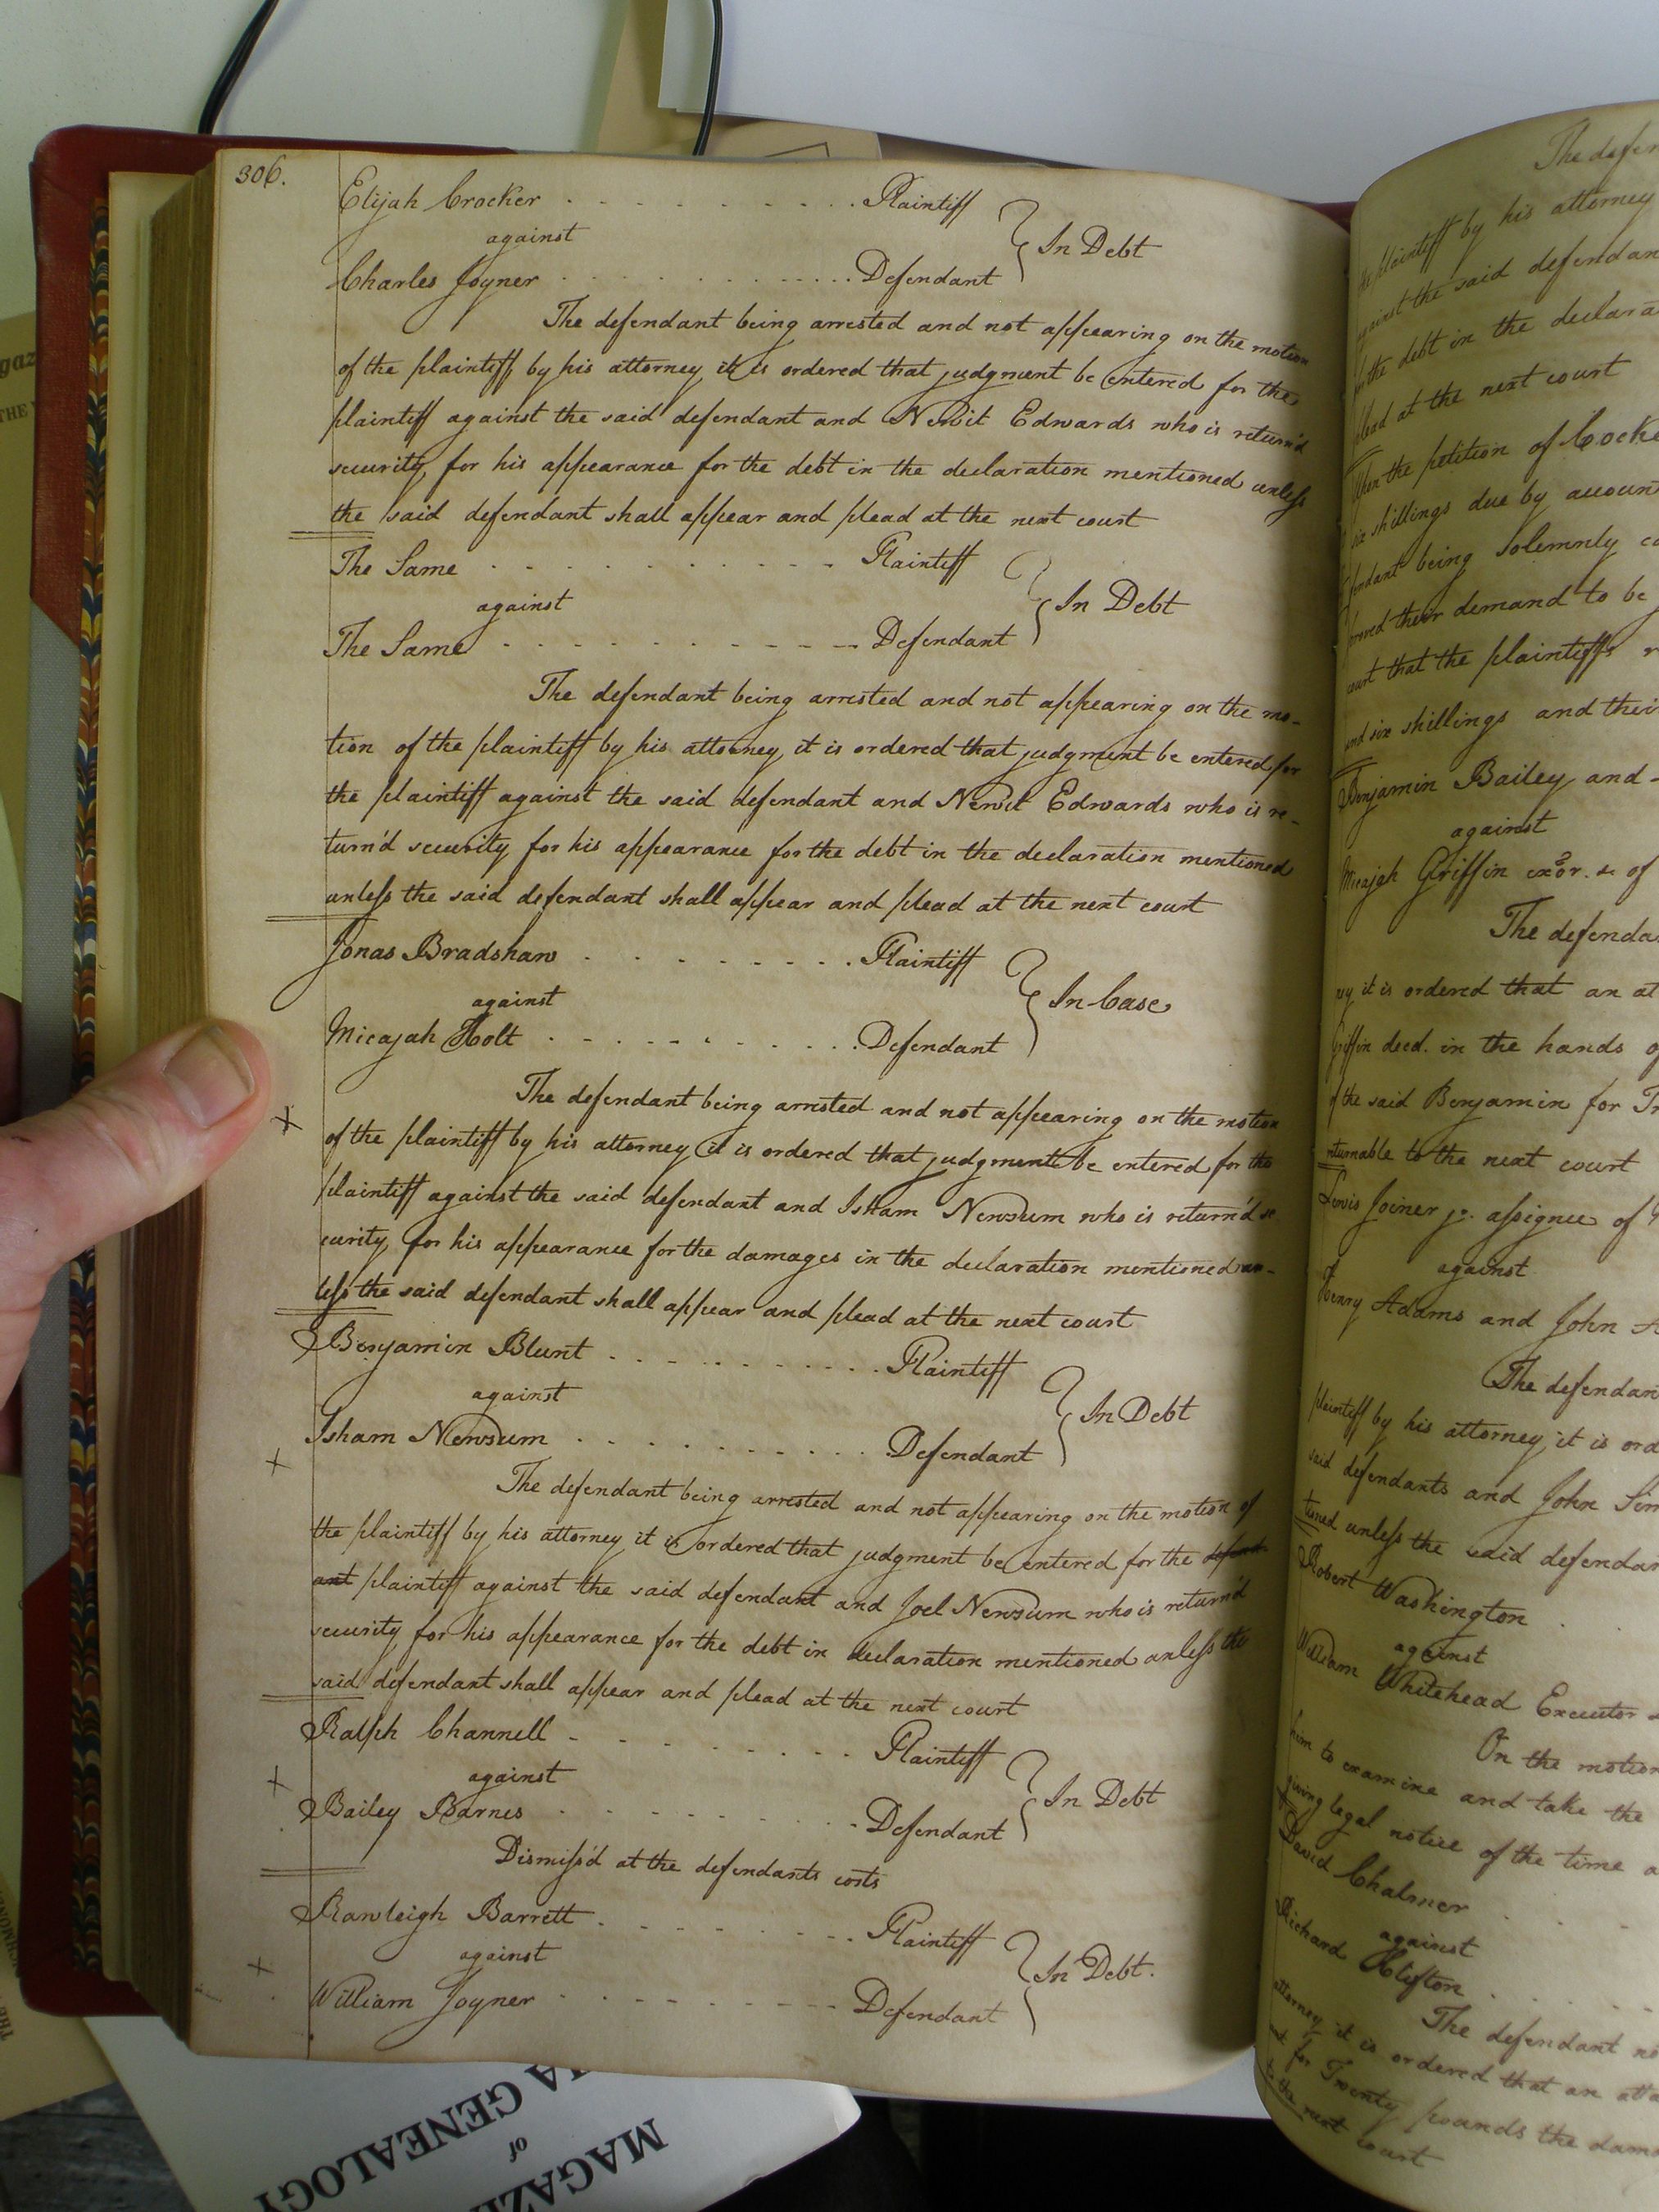 306.
Elijah Crocker . . . . . . . . . . Plaintiff
against
In Debt
Charles Joyner . . . . . . . . . . Defendant
The defendant being arrested and not appearing on the motion
of the plaintiff by his attorney it is ordered that judgment be entered for the
plaintiff against the said defendant and Newit Edwards who is return'd
security for his appearance for the debt in the declaration mentioned unless
the said defendant shall appear and plead at the next court
The Same . . . . . . . . . . Plaintiff
against
In Debt
The Same . . . . . . . . . . Defendant
The defendant being arrested and not appearing on the mo-
tion of the plaintiff by his attorney it is ordered that judgment be entered for
the plaintiff against the said defendant and Newit Edwards who is re-
turn'd security for his appearance for the debt in the declaration mentioned
unless the said defendant shall appear and plead at the next court
Jonas Bradshaw . . . . . . . . Plaintiff
against
In Case
Micajah Holt . . . . . . . . . . Defendant
The defendant being arrested and not appearing on the motion
of the plaintiff by his attorney it is ordered that judgment be entered for the
plaintiff against the said defendant and Isham Newsum who is return'd se
curity for his appearance for the damages in the declaration mentioned un-
less the said defendant shall appear and plead at the next court
Benjamin Blunt . . . . . . . . . . Plaintiff
against
In Debt
Isham Newsum . . . . . . . . . . Defendant
The defendant being arrested and not appearing on the motion of
the plaintiff by his attorney it is ordered that judgment be entered for the defend
ant plaintiff against the said defendant and Joel Newsum who is return'd
security for his appearance for the debt in declaration mentioned unless the
said defendant shall appear and plead at the next court
Ralph Channell . . . . . . . . . Plaintiff
against
In Debt
Bailey Barnes . . . . . . . . . Defendant
Dismiss'd at the defendants costs
Rawleigh Barrett . . . . . . . . Plaintiff
against
In Debt.
William Joyner . . . . . . . . . Defendant
The defen
the plaintiff by his attorney
against the said defendan
for the debt in the declara
plead at the next court
Upon the petition of Cocke
six shillings due by accoun
fendant being solemnly ca
proved their demand to be
court that the plaintiffs r
and six shillings and their
Benjamin Bailey and
against
Micajah Griffin exor. &c of
The defenda
ney it is ordered that an at
Griffin deed. in the hands o
of the said Benjamin for Tr
returnable to the next court
Lewis Joiner jr. assignee of
against
Henry Adams and John A
The defendan
plaintiff by his attorney it is ord
said defendants and John Sim
tioned unless the said defendan
Robert Washington .
against
William Whitehead Executor &
On the motion
him to examine and take the
giving legal notice of the time a
David Chalmer . . .
against
Richard Clifton . . . . .
The defendant no
attorney it is ordered that an atta
ant for Twenty pounds the dama
to the next court
MAGAZI
of
A GENEALOGY